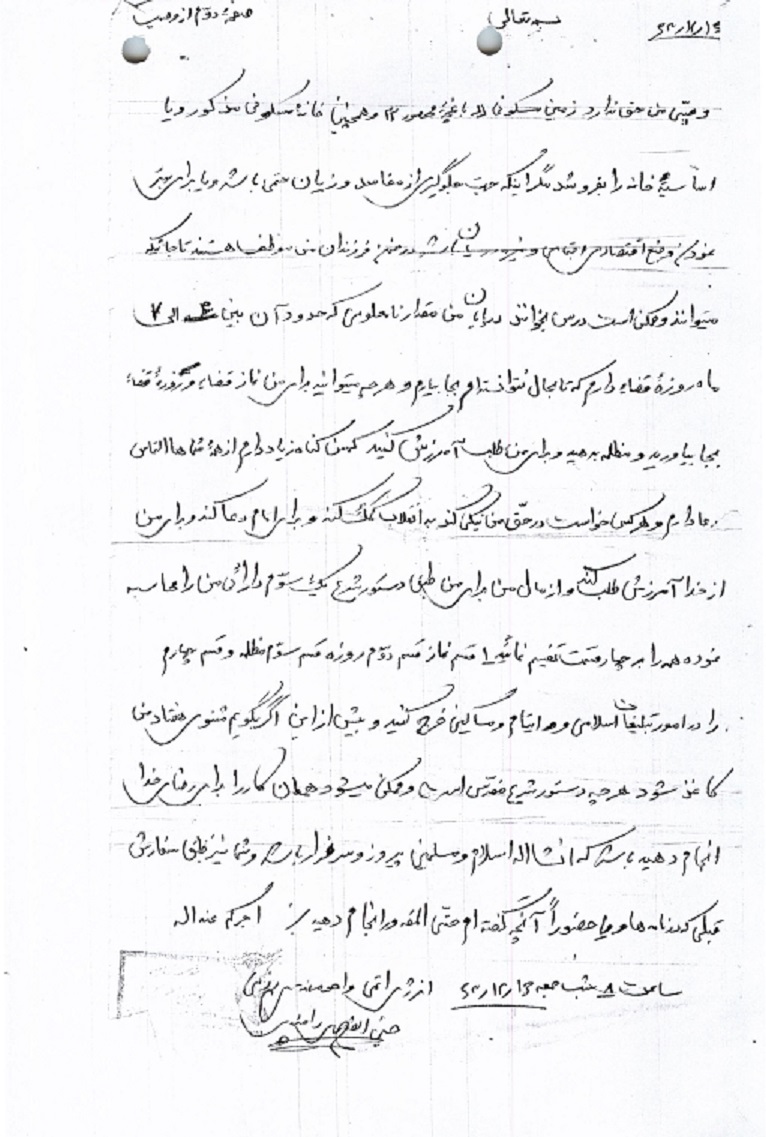 بسمه تعالی
صفحهٔ دوّم از وصیت
وصیّ من حق ندارد زمین مسکونی و همچنین خانهٔ مسکونی مذکور و یا
اساسیهٔ خانه را بفروشد مگر اینکه جهت جلوگیری از مفاسد و زیان حتمی باشد و یا برای بهتر
نمودن وضع اقتصادی باشد در ضمن فرزندان من موظف هستند تا جائیکه
میتوانند و ممکن است درس بخوانند من مقدار نامعلومی که حدود آن بین ۴ الی ۷
ماه روزهٔ قضاء دارم که تا بحال نتوانسته‌ام بجا بیاورم و هر چه میتوانید برای من نماز قضاء و روزهٔ قضاء
بجا بیاورید و مظالم بدهید و برای من طلب آمرزش کنید که من گناه زیاد دارم از همهٔ شماها التماس
دعا دارم و هر کس خواست در حقّ من نیکی کند به انقلاب کمک کند و برای امام دعا کند و برای من
از خدا آمرزش طلب کند و از مال من برای من طبق دستور شرع یک سوّم دارائی من را محاسبه
نموده همه را بر چهار قسمت تقسیم نمائید ۱ قسم نماز قسم دوّم روزه قسم سوّم مظالم و قسم چهارم
را در امور تبلیغات اسلامی و ایتام و مساکین خرج کنید و بیش از این اگر بگویم مثنوی هفتاد من
کاغذ شود هر چه دستور شرع مقدّس است و ممکن میشود همان کار را برای رضای خدا
انجام دهید باشد که انشاالله اسلام و مسلمین پیروز و سرفراز باشد و شما نیز طبق سفارش
قبلی که در نامه‌ها و یا حضوراً آنچه گفته‌ام حتّی المقدور انجام دهید اجرکم عندالله
ساعت ۸ شب جمعه